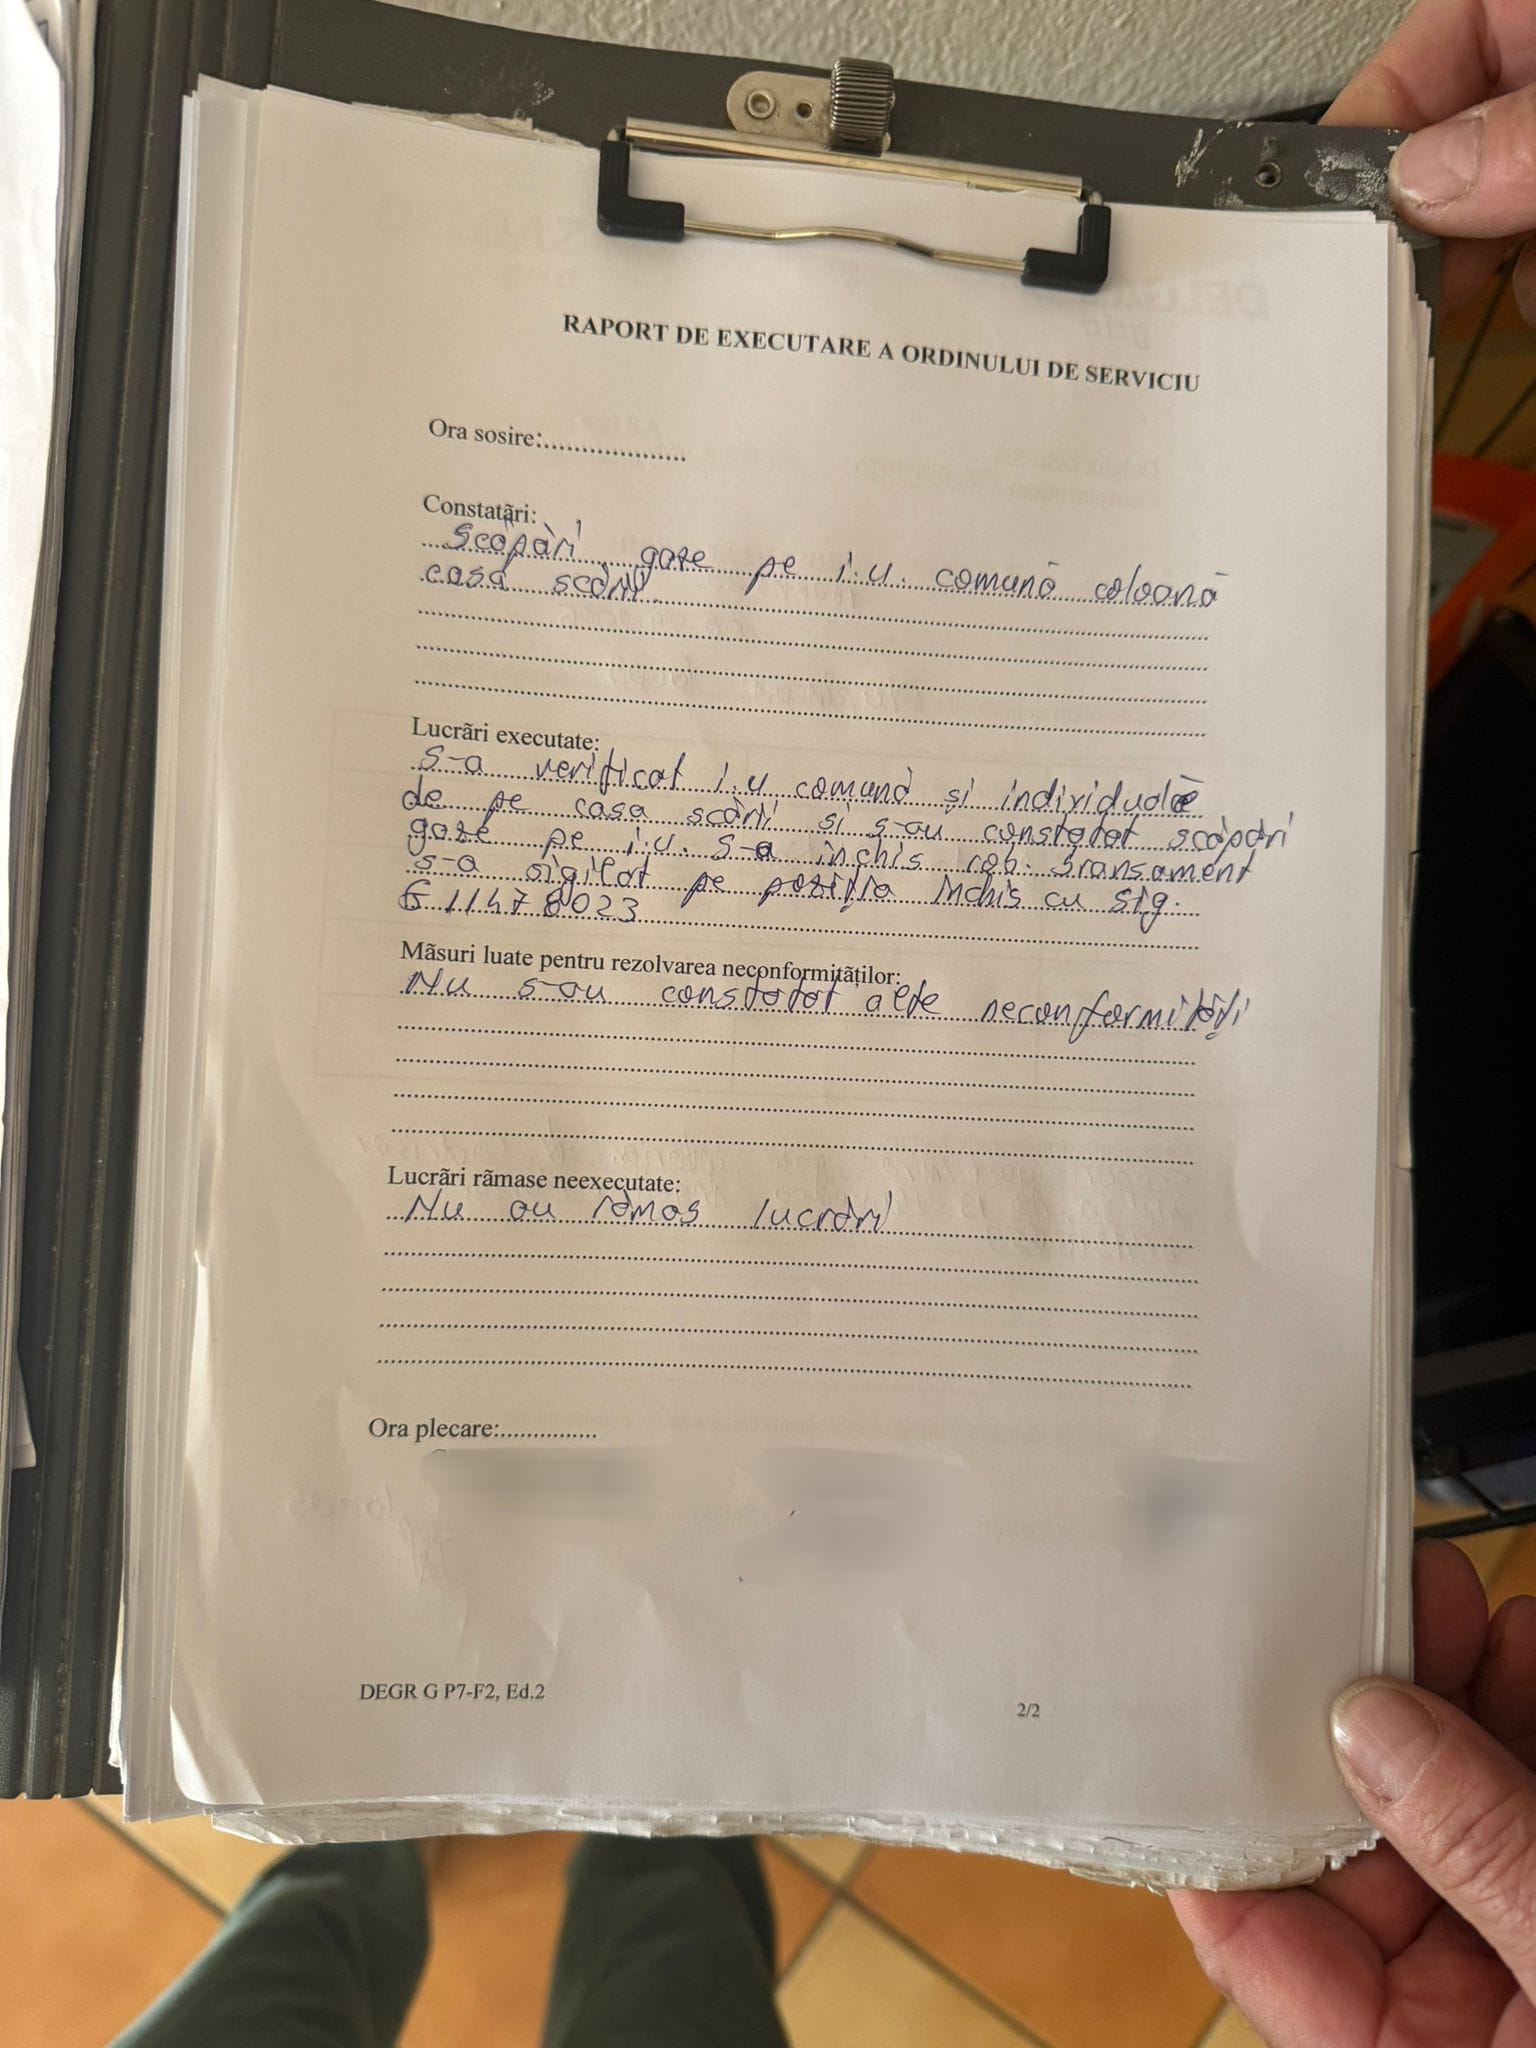 RAPORT DE EXECUTARE A ORDINULUI DE SERVICIU
Ora sosire:....................
Constatãri:
Scăpări gaze pe i.u. comună coloană
casa scării
Lucrãri executate:
S-a verificat i.u comună și individuale
de pe casa scării si s-au constatat scăpări
gaze pe i.u. S-a închis rob. bransament
s-a sigilat pe poziția închis cu sig.
G 11478023
Mãsuri luate pentru rezolvarea neconformitãților:
Nu s-au constatat alte neconformități
Lucrãri rãmase neexecutate:
Nu au rămas lucrări
Ora plecare:...............
DEGR G P7-F2, Ed.2
2/2